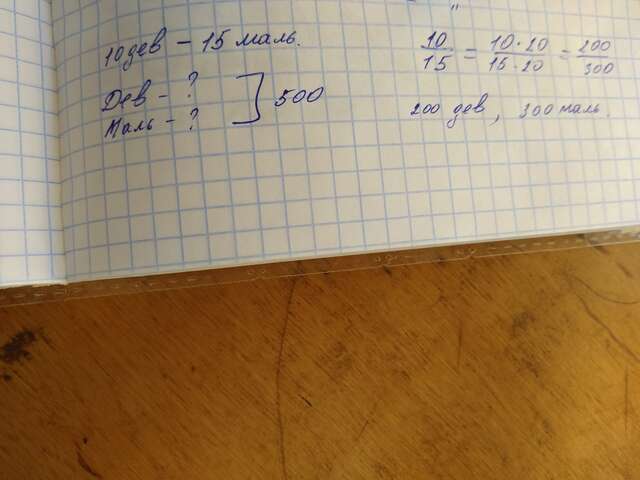 10 дев - 15 маль.
Дев - ?
Маль - ?
500
10/15 = 10·20/15·20 = 200/300
200 дев, 300 маль.